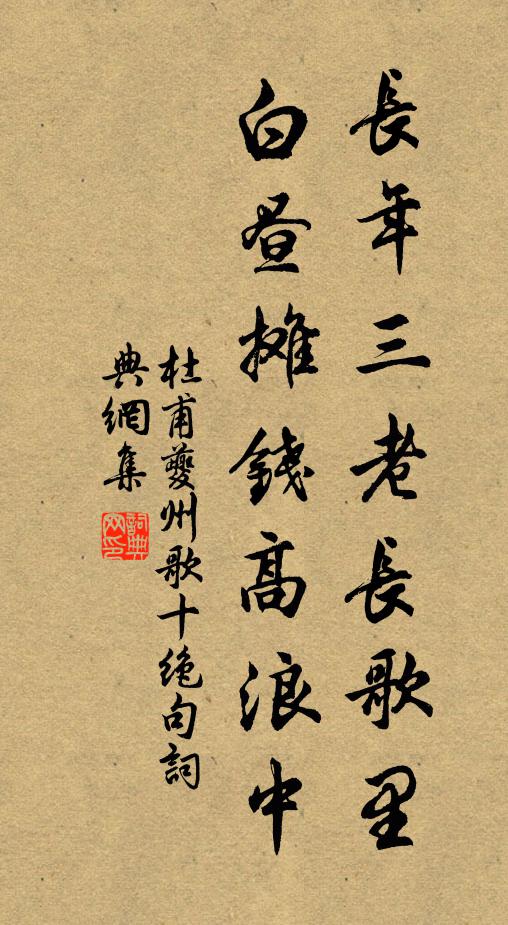 長年三老長歌里
白晝攤錢高浪中
杜甫夔州歌十絶句詞
典網集
詞典
网印